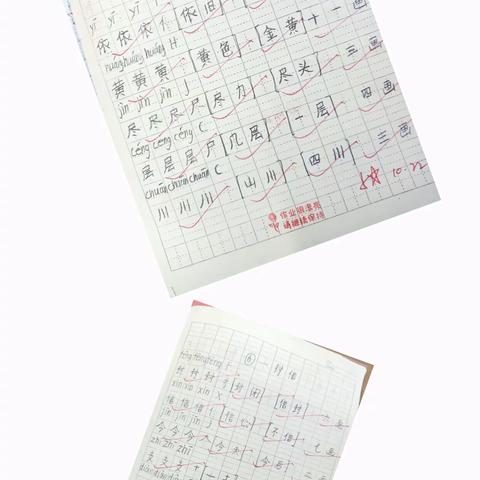 yī yī yī
依 依 依 亻 [依旧]
huáng huáng huáng H
黄 黄 黄 [黄色] [金黄] 十一画
jìn jìn jìn J
尽 尽 尽 尸 [尽力] [尽头] 三画
céng céng céng C
层 层 层 户 [几层] [一层] 四画
chuān chuān chuān C
川 川 川 [山川] [四川] 三画
10.22
作业很漂亮
请继续保持
fēng fēng fēng F ⑥ 封信
封 封 封 [封闭] [信封] 九画
xìn xìn xìn X
信 信 信 亻 [信心] [不信] 七画
jīn jīn jīn J
今 今 今 人 [今天] [今晋]
zhī zhī zhī
支 支 支 十